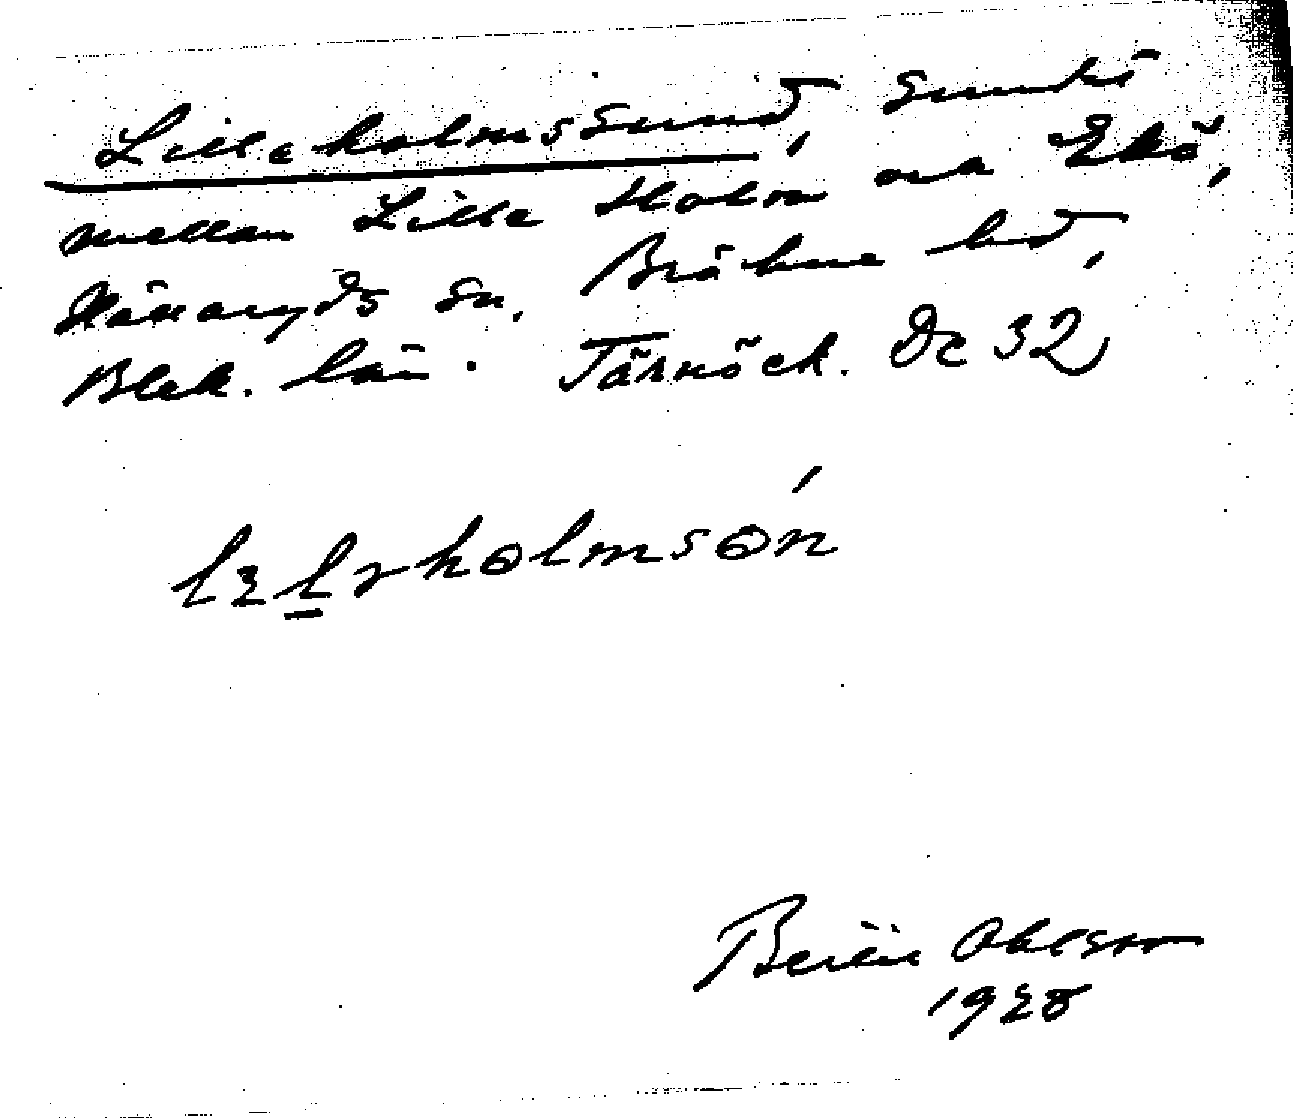 Lilleholmssund, sundet
mellan Lille Holm och Ekö,
Hällaryds sn, Bräkne hd,
Blek. län. Tärnöck. Dc 32
Bertil Ohlsson
1928